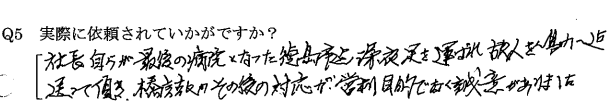 Q5 実際に依頼されていかがですか？
社長自らが最後の病院となった徳島市迄、深夜足を運ばれ故人を鳥力へ迄
送って頂き、 その後の対応が、営利目的でなく誠意がありました